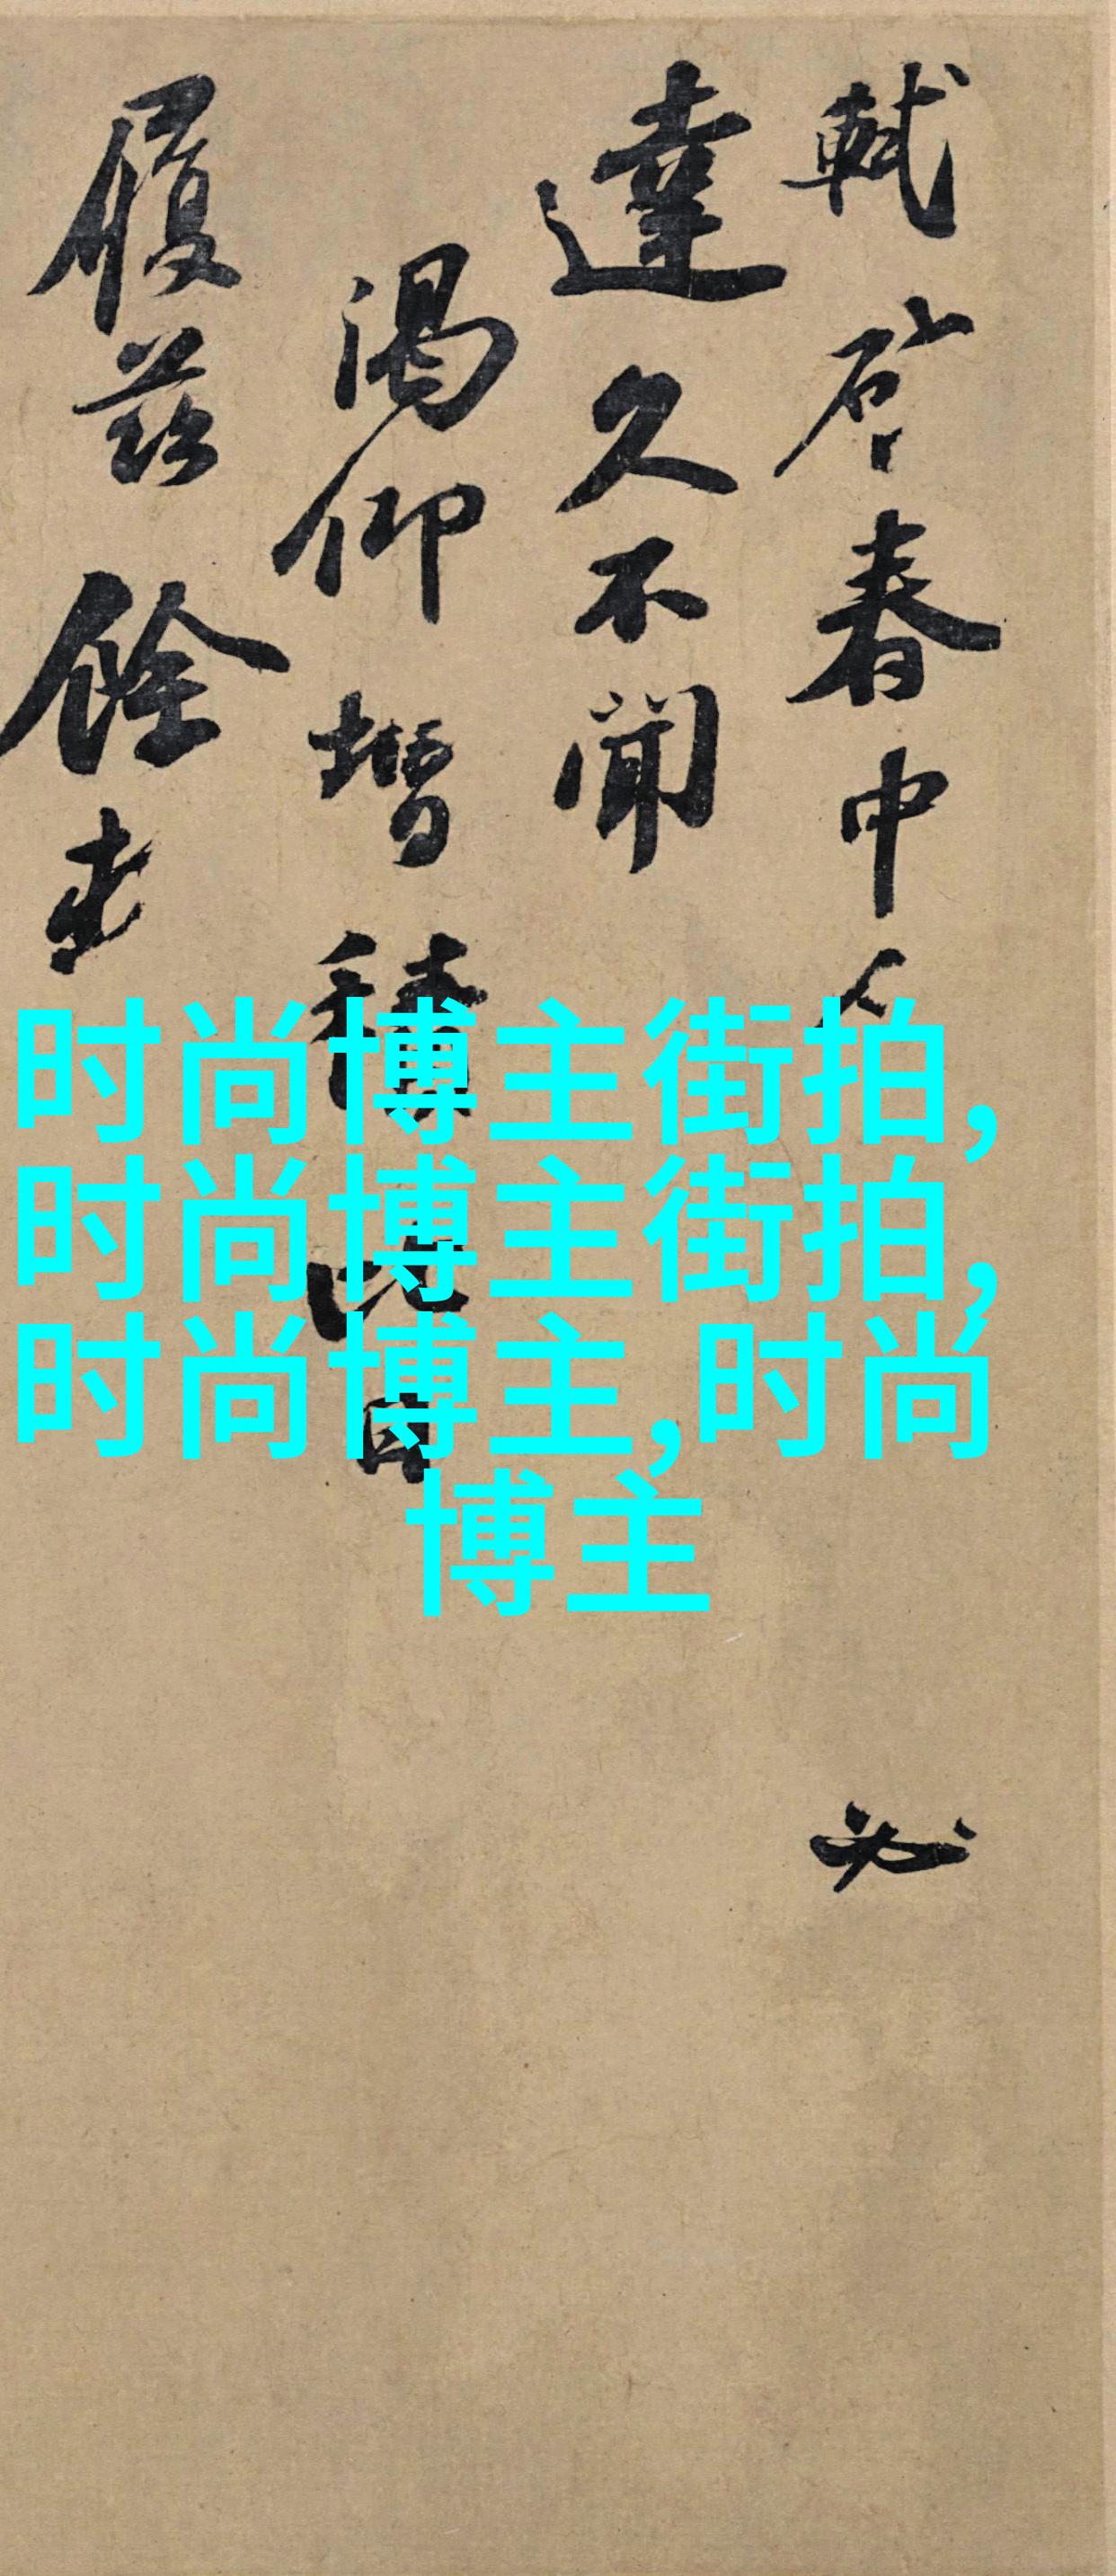 軾啓春中人必
達久不聞
渴仰增積比日
履茲餘
时尚博主街拍,
时尚博主街拍,
时尚博主,时尚
博主